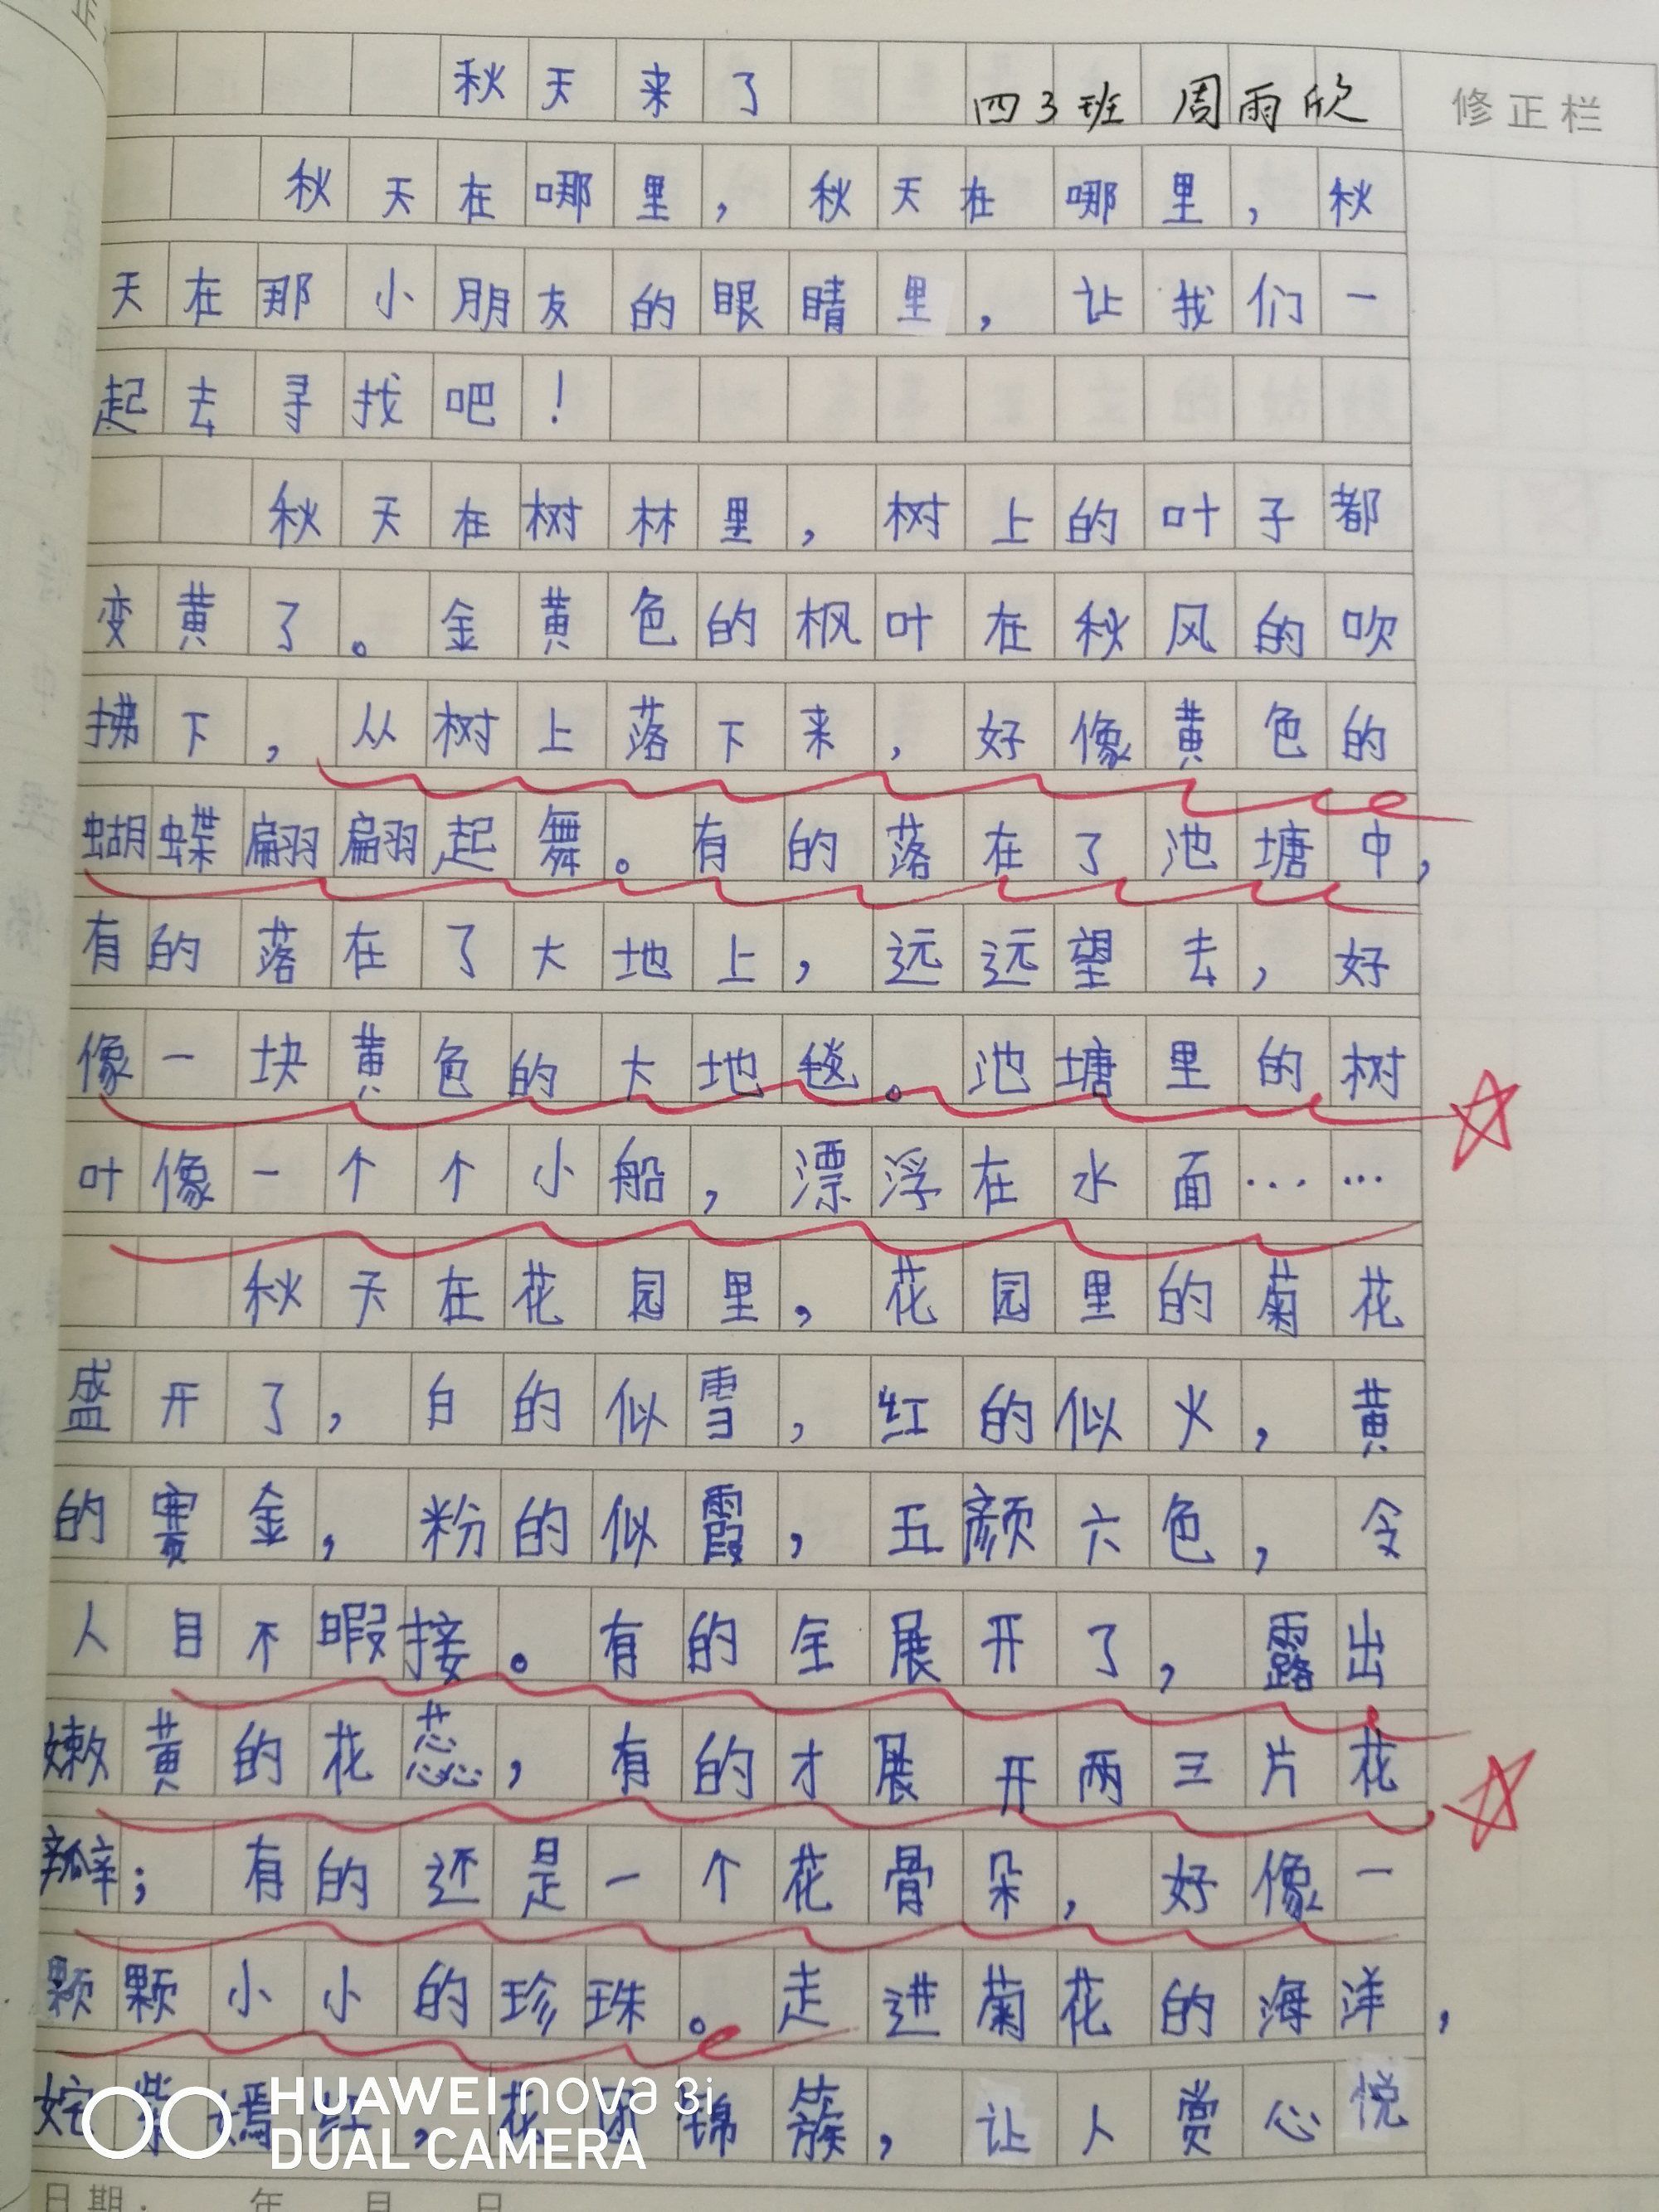 秋天来了 四3班 周雨欣
修正栏
秋天在哪里，秋天在哪里，秋
天在那小朋友的眼睛里，让我们一
起去寻找吧！
秋天在树林里，树上的叶子都
变黄了。金黄色的枫叶在秋风的吹
拂下，从树上落下来，好像黄色的
蝴蝶翩翩起舞。有的落在了池塘中，
有的落在了大地上，远远望去，好
像一块黄色的大地毯。池塘里的树
叶像一个个小船，漂浮在水面……
秋天在花园里，花园里的菊花
盛开了，白的似雪，红的似火，黄
的赛金，粉的似霞，五颜六色，令
人目不暇接。有的全展开了，露出
嫩黄的花蕊，有的才展开两三片花
瓣；有的还是一个花骨朵，好像一
颗颗小小的珍珠。走进菊花的海洋，
姹紫嫣红，花团锦簇，让人赏心悦
HUAWEI nova 3i
DUAL CAMERA
日期： 年 月 日